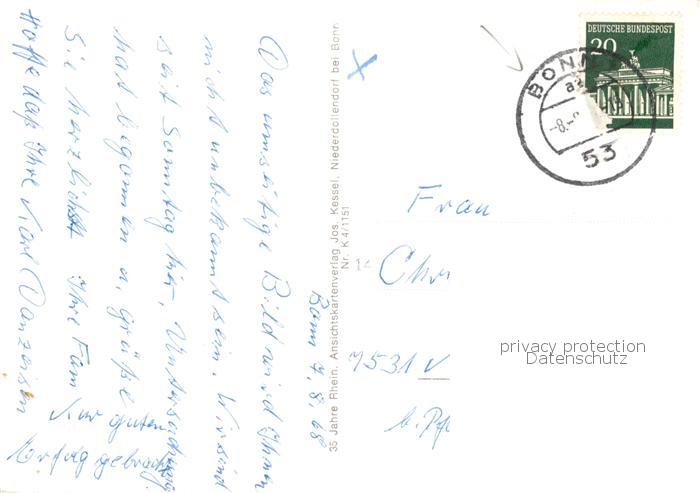 Bonn 7.8.68
Das umseitige Bild wird Ihnen
nicht unbekannt sein. Wir sind
seit Sonntag hier, Untersuchung
hat begonnen u. grüße
Sie herzlichst Ihre Fam
Hoffe daß Ihre Kur guten
Erfolg gebracht
35 Jahre Rhein. Ansichtskartenverlag Jos. Kessel, Niederdollendorf bei Bonn
Nr. K 4/1151
DEUTSCHE BUNDESPOST
20
BONN
53
Frau
Chr
7531
b. Pf
privacy protection
Datenschutz